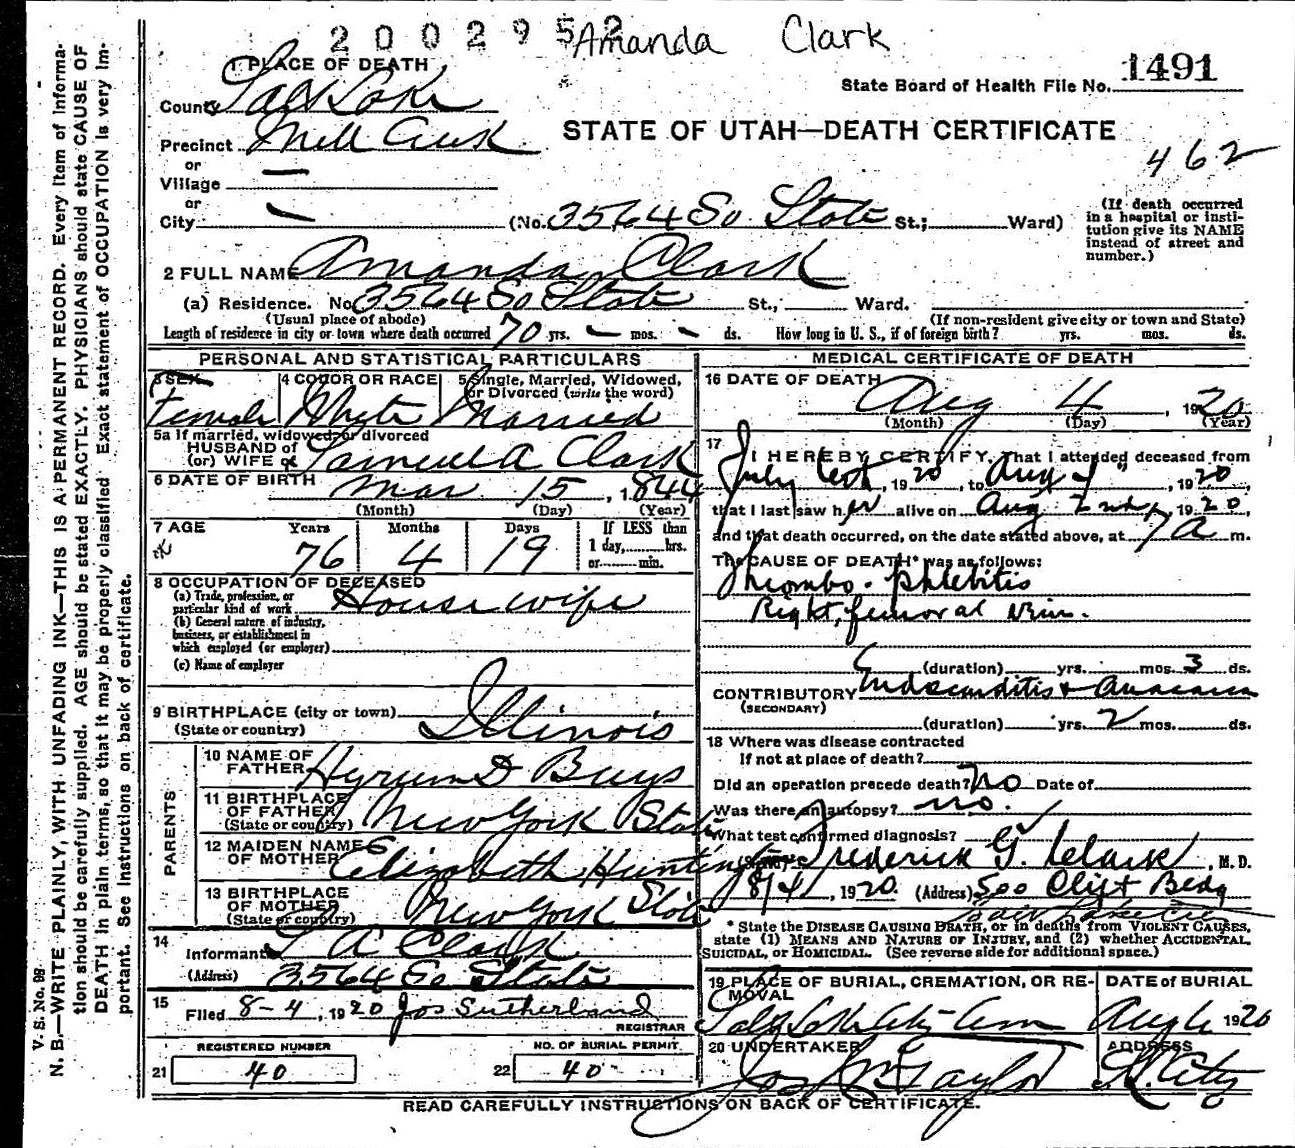 2002952 Amanda Clark
1 PLACE OF DEATH
State Board of Health File No. 1491
County Salt Lake
STATE OF UTAH—DEATH CERTIFICATE
Precinct Mill Creek
462
or
Village —
or
City — (No. 3564 So State St.; Ward)
(If death occurred
in a hospital or insti-
tution give its NAME
instead of street and
number.)
2 FULL NAME Amanda Clark
(a) Residence. No. 3564 So State St., Ward.
(Usual place of abode) (If non-resident give city or town and State)
Length of residence in city or town where death occurred 70 yrs. — mos. — ds. How long in U. S., if of foreign birth? yrs. mos. ds.
PERSONAL AND STATISTICAL PARTICULARS
3 SEX 4 COLOR OR RACE 5 Single, Married, Widowed,
or Divorced (write the word)
Female White Married
5a If married, widowed, or divorced
HUSBAND of
(or) WIFE of Samuel A Clark
6 DATE OF BIRTH Mar 15, 1844
(Month) (Day) (Year)
7 AGE Years Months Days If LESS than
1 day,........hrs.
or........min.
76 4 19
8 OCCUPATION OF DECEASED
(a) Trade, profession, or
particular kind of work House wife
(b) General nature of industry,
business, or establishment in
which employed (or employer)
(c) Name of employer
9 BIRTHPLACE (city or town)
(State or country) Illinois
PARENTS
10 NAME OF
FATHER Hyrum D Buys
11 BIRTHPLACE
OF FATHER
(State or country) New York State
12 MAIDEN NAME
OF MOTHER Elizabeth Huntington
13 BIRTHPLACE
OF MOTHER
(State or country) New York State
14
Informant S A Clark
(Address) 3564 So State
15 Filed 8-4, 1920 Jos Sutherland
REGISTRAR
REGISTERED NUMBER NO. OF BURIAL PERMIT
21 40 22 40
MEDICAL CERTIFICATE OF DEATH
16 DATE OF DEATH
Aug 4, 1920
(Month) (Day) (Year)
17
I HEREBY CERTIFY, That I attended deceased from
July, 1920, to Aug 4", 1920,
that I last saw her alive on Aug 2nd, 1920,
and that death occurred, on the date stated above, at 7 A m.
The CAUSE OF DEATH* was as follows:
Thrombo-phlebitis
Right, femoral vein.
(duration) yrs. mos. 3 ds.
CONTRIBUTORY Endocarditis + Anasarca
(SECONDARY)
(duration) yrs. 2 mos. ds.
18 Where was disease contracted
If not at place of death?
Did an operation precede death? No Date of
Was there an autopsy? no.
What test confirmed diagnosis?
(Signed) Frederick G. Clark, M. D.
8/4, 1920 (Address) 500 Clift Bldg
Salt Lake City
* State the DISEASE CAUSING DEATH, or in deaths from VIOLENT CAUSES,
state (1) MEANS AND NATURE OF INJURY, and (2) whether ACCIDENTAL,
SUICIDAL, or HOMICIDAL. (See reverse side for additional space.)
19 PLACE OF BURIAL, CREMATION, OR RE-
MOVAL
DATE of BURIAL
Salt Lake City Cem Aug 6 1920
20 UNDERTAKER ADDRESS
Jos Wm Taylor S.L. City
READ CAREFULLY INSTRUCTIONS ON BACK OF CERTIFICATE.
V. S. No. 98
N. B.—WRITE PLAINLY, WITH UNFADING INK—THIS IS A PERMANENT RECORD. Every item of informa-
tion should be carefully supplied. AGE should be stated EXACTLY. PHYSICIANS should state CAUSE OF
DEATH in plain terms, so that it may be properly classified. Exact statement of OCCUPATION is very im-
portant. See instructions on back of certificate.